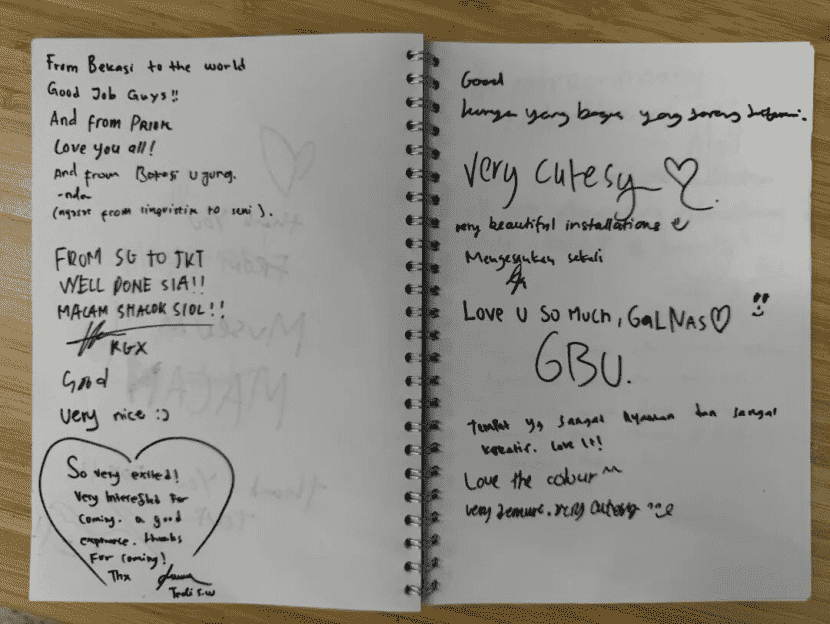 From Bekasi to the world
Good Job Guys!!
And from PRIOK
Love you all!
And from Bekasi Ujung.
-nda-
(nyasar from linguistik to seni).
FROM SG TO JKT
WELL DONE SIA!!
MACAM SHACOK SIOL!!
RGX
Good
very nice :)
So very exited!
Very Interested For
coming. a good
experience. thanks
For coming!
Thx
Tedi S.W
Good
karya yang bagus yang
very cutesy ♡.
very beautiful installations
Mengesankan sekali
Love u so much, GaLNAS♡
GBU.
Tempat yg sangat nyaman dan sangat
kreatif. Love It!
Love the colour ^^
very demure. very cutesy